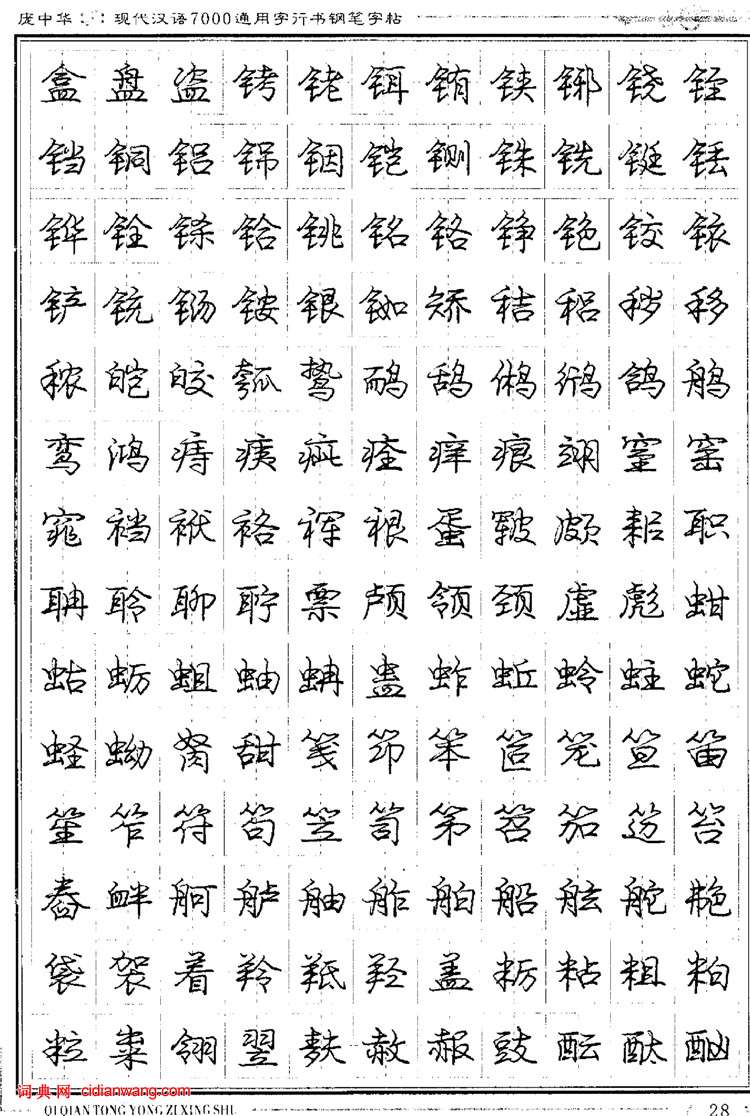 庞中华：：现代汉语7000通用字行书钢笔字帖
盒盘盗铐铑铒铕铗铘铙铚
铛铜铝铞铟铠铡铢铣铤铥
铧铨铩铪铫铭铬铮铯铰铱
铲铳铴铵银铷矫秸稆秽移
秾皑皎瓠鸷鸸鸹鸺鸻鸽鸼
鸾鸿痔痍疵痊痒痕翊窒窑
窕裆袱袼裈裉蛋皲皴颇耜职
聃聆聊聍票颅领颈虚彪蚶
蛄蛎蛆蚰蚺蛊蚱蚯蛉蛀蛇
蛏蚴胬甜笺笻笨笸笼笪笛
笙笮符笱笠笥第笤笳笾笞
舂衅舸舻舳舴舶船舷舵艴
袋袈着羚羝羟盖粝粘粗粕
粒粜翎翌麸赦赧豉酝酞酗
词典网 cidianwang.com
QI QIAN TONG YONG ZI XING SHU
28